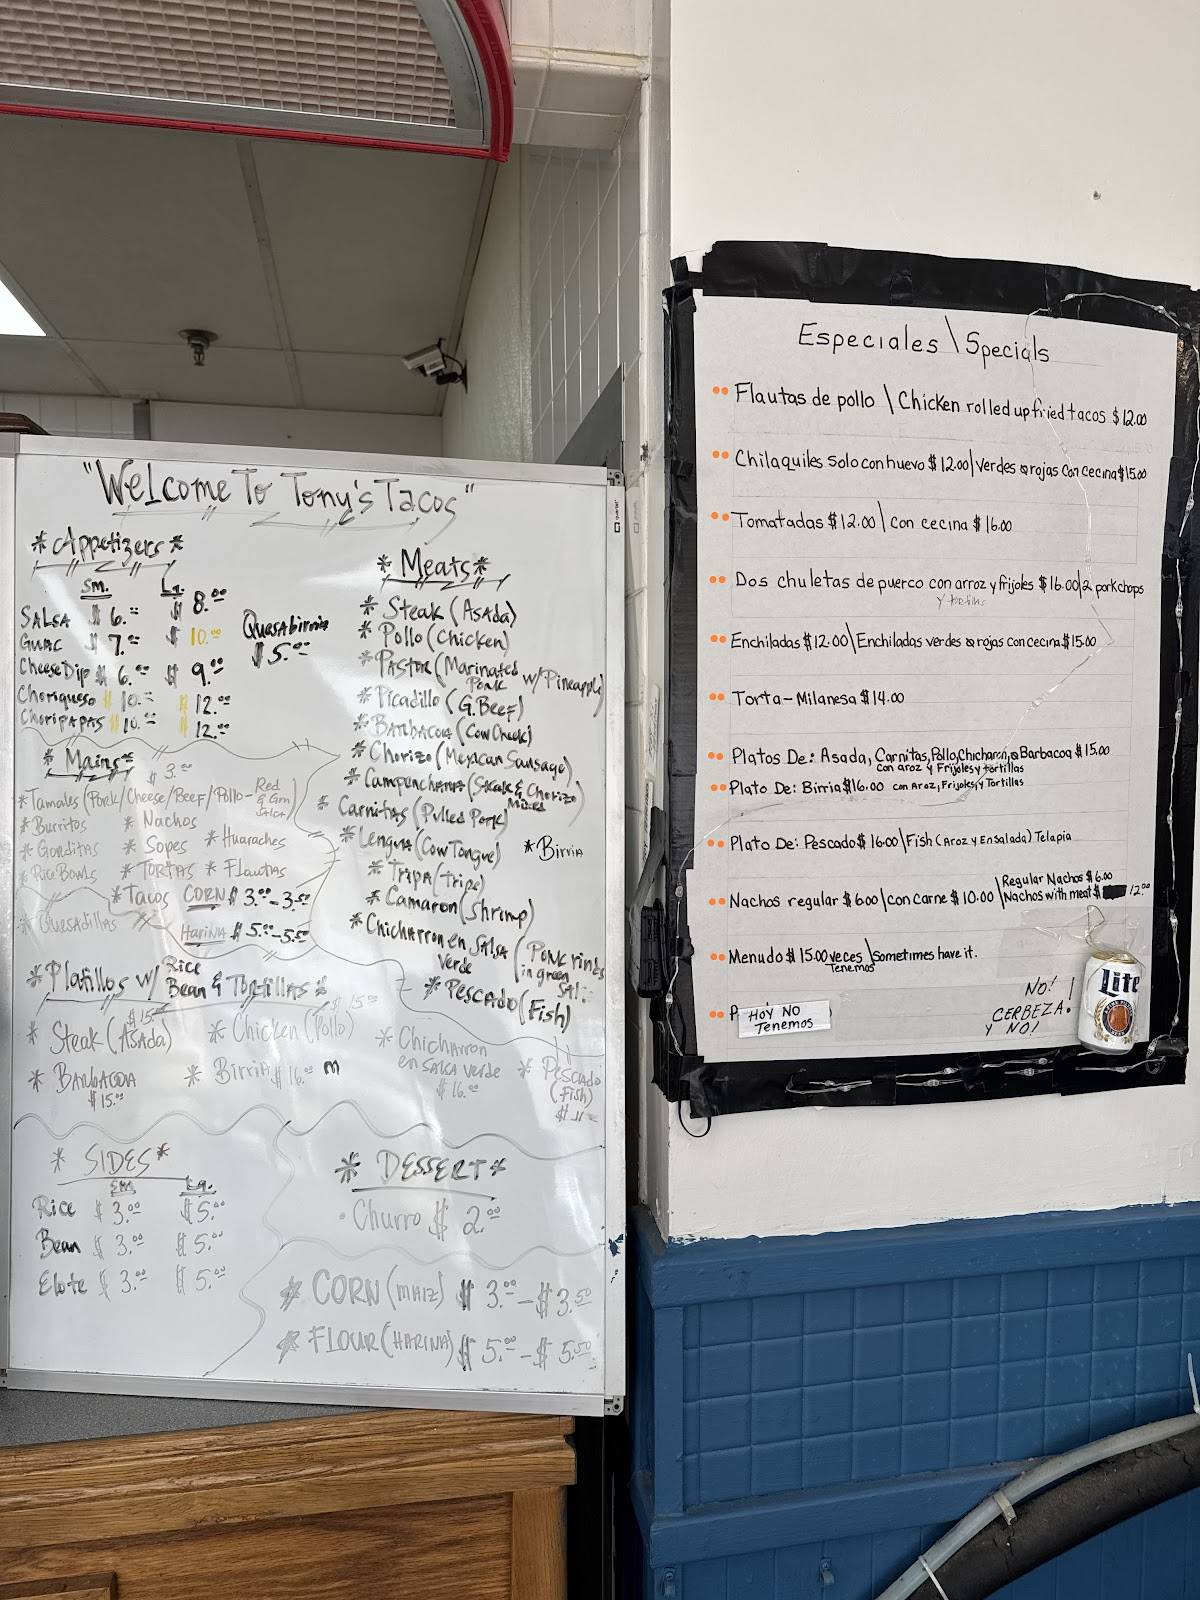 "Welcome To Tony's Tacos"
*Appetizers*
Sm. Lg.
SALSA $6.00 $8.00
GUAC $7.00 $10.00
Cheese Dip $6.00 $9.00
Choriqueso $10.00 $12.00
Choripapas $10.00 $12.00
Quesabirria
$5.00
*Mains*
$3.00
*Tamales (Pork/Cheese/Beef/Pollo- Red & Grn Salsa)
*Burritos * Nachos
*Gorditas * Sopes * Huaraches
*Rice Bowls *TORTAS * Flautas
*Tacos CORN $3.00-3.50
*Quesadillas HARINA $5.00-5.50
*Meats*
*Steak (Asada)
*Pollo (Chicken)
*Pastor (Marinated Pork w/Pineapple)
*Picadillo (G. Beef)
*Barbacoa (Cow Cheek)
*Chorizo (Mexican Sausage)
*Campenchana (Steak & Chorizo Mixed)
Carnitas (Pulled Pork)
*Lengua (Cow Tongue) *Birria
*Tripa (Tripe)
*Camaron (Shrimp)
*Chicharron en Salsa Verde (Pork rinds in green Sal.
*Pescado (Fish)
*Platillos w/ Rice Bean & Tortillas*
$15.00
*Steak (Asada) $15.00 *Chicken (Pollo) *Chicharron en salsa verde $16.00
*Barbacoa $15.00 *Birria $16.00 m *Pescado (Fish)
* SIDES*
Sm. Lg.
Rice $3.00 $5.00
Bean $3.00 $5.00
Elote $3.00 $5.00
* DESSERT*
• Churro $2.00
* CORN (MAIZ) $3.00-$3.50
* FLOUR (HARINA) $5.00-$5.50
Especiales \ Specials
Flautas de pollo \ Chicken rolled up fried tacos $12.00
Chilaquiles solo con huevo $12.00 | verdes o rojas con cecina $15.00
Tomatadas $12.00 \ con cecina $16.00
Dos chuletas de puerco con arroz y frijoles $16.00 | 2 pork chops
y tortillas
Enchiladas $12.00 \ Enchiladas verdes o rojas con cecina $15.00
Torta-Milanesa $14.00
Platos De: Asada, Carnitas, Pollo, Chicharon, o Barbacoa $15.00
con aroz y Frijoles y tortillas
Plato De: Birria $16.00 con Aroz, Frijoles, y Tortillas
Plato De: Pescado $16.00 | Fish (Aroz y Ensalada) Telapia
Nachos regular $6.00 | con carne $10.00 \ Regular Nachos $6.00
Nachos with meat $ 12.00
Menudo $15.00 veces \ Sometimes have it.
Tenemos
P HOY NO
Tenemos
NO!
CERBEZA!
Y NO!
Lite